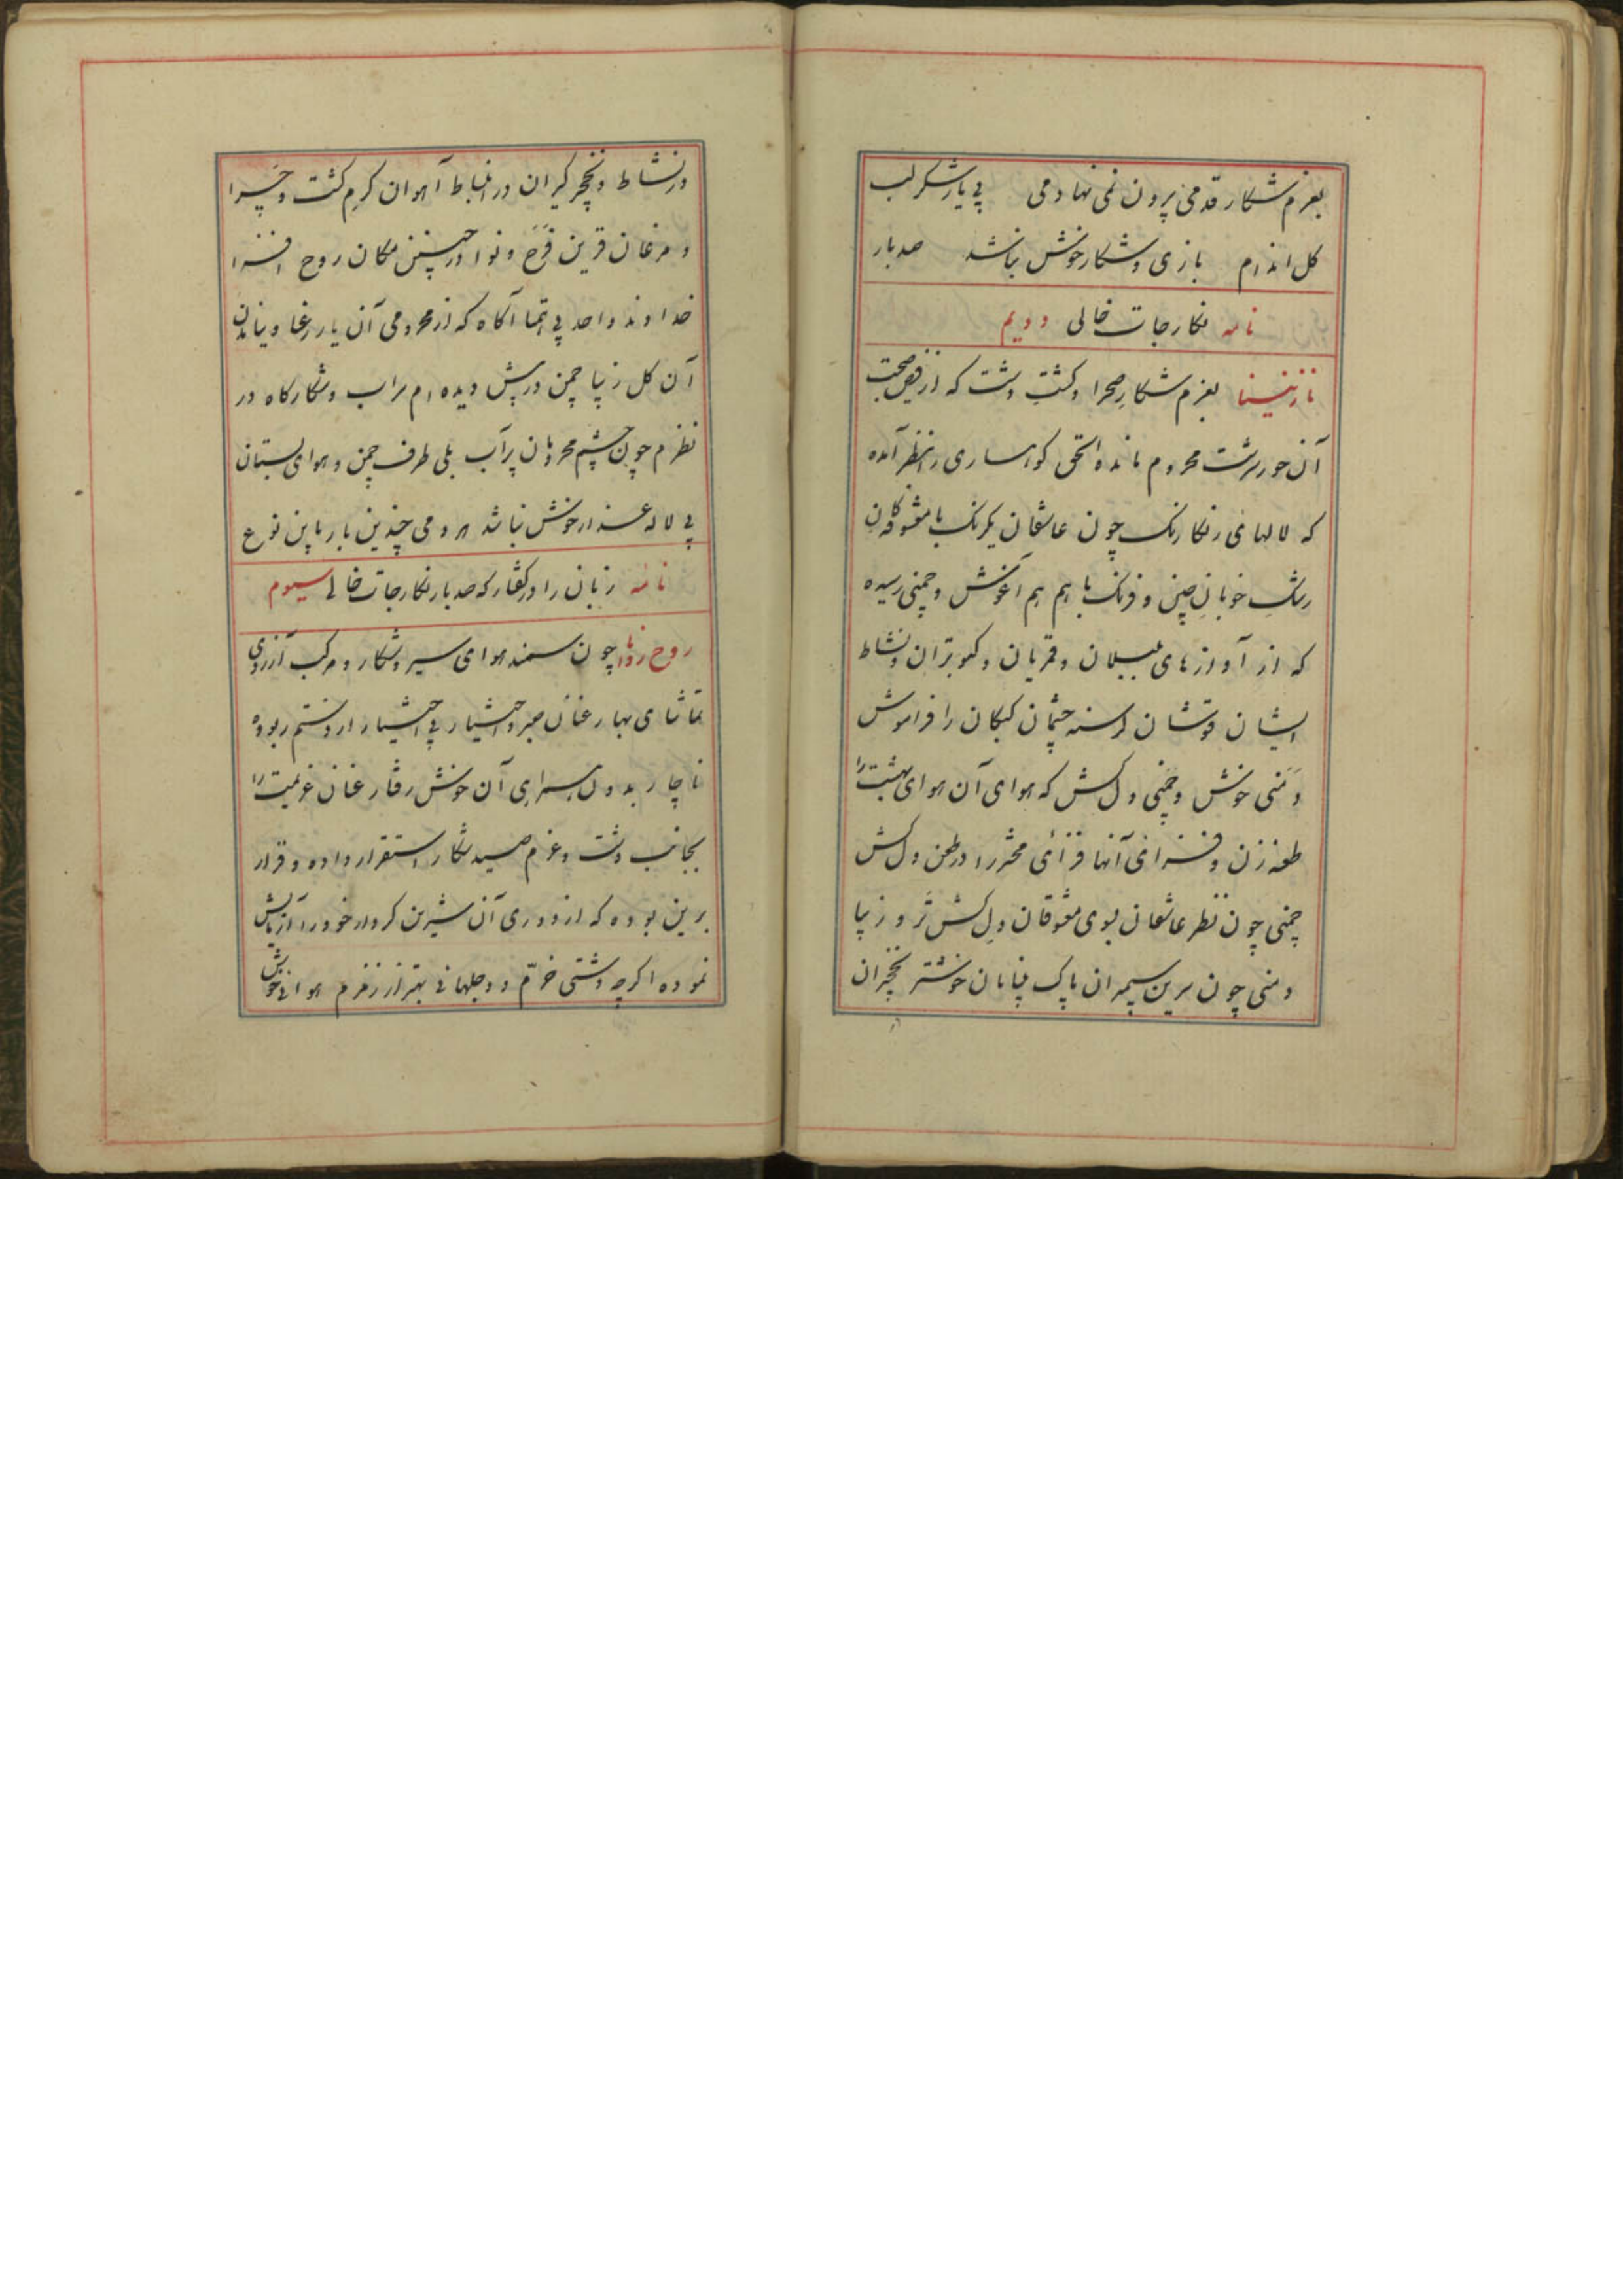 بعزم شکار قدمی بیرون نمی نهادمی بی یار شکر لب
کل اندام بازی و شکار خوش نباشد صد بار
نامه نکار جات خالی دویم
نازنینا بعزم شکارِ صحرا و کشتِ دشت که از فیض صحبت
آن حور سرشت محروم مانده الحق کوهساری در نظر آمده
که لالهای رنکارنک چون عاشقان یکرنک با معشوقه کان
رشکِ خوبانِ چین و فرنک با هم هم آغوش و چمنی رسیده
که از آوازهای بلبلان و قمریان و کبوتران و نشاط
ایشان کرسنه چشمان کبکان را فراموش
دمنی خوش و چمنی دل کش که هوای آن هوای بهشت را
طعنه زن و فزای محشر را در طعن دل کش
چمنی چون نظر عاشقان بوی معشوقان دل کش تر و زیبا
دمنی چون سرین سیمبران پاک خوشتر نخچیران
در نشاط و نخچیر کیران در انبساط آهوان کرمِ کشت و چرا
و مرغان قرین فرح و نوا در چنین مکان روح افزا
خداوند واحد بی همتا آکاه که از محرومی آن یار رعنا و
آن کل زیبا چمن در پیش دیده ام سراب و شکارکاه در
نظرم چون چشم محرومان پر آب بلی طرف چمن و هوای بستان
بی لاله عذار خوش نباشد چندین بار باین نوع
نامه زبان را در کفتار که صد بار نکار جات خالی سیوم
روح روانا چون سمند هوای سیر و شکار و مرکب آرزوی
تماشای بهار عنان صبر و اختیار بی اختیار از دستم ربوده
ناچار بدون همراهی آن خوش رفتار عنان عزیمت را
بجانب دشت و عزم صید شکار استقرار داده و قرار
برین بوده که از دوری آن شیرین کردار خود را آزمایش
نموده اکرچه دشتی خرّم و دجلهائی بهتر از زمزم هوائی خوش